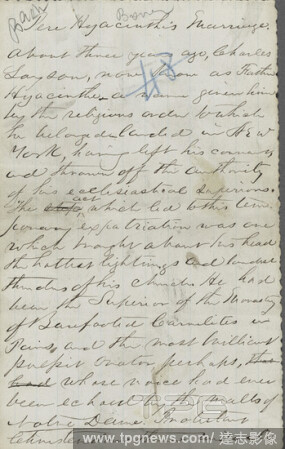 Bacon
Bower
Pere Hyacinthe's Marriage.
About three years ago, Charles
Loyson, now known as Father
Hyacinthe, a name given him
by the religious order to which
he belonged, landed in New
York, having left his convent
and thrown off the authority
of his ecclesiastical superiors.
The act which led to this tem-
porary expatriation was one
which brought about his head
the hottest lightnings and loudest
thunders of his church. He had
been the Superior of the Monastery
of Barefooted Carmelites in
Paris, and the most brilliant
pulpit orator perhaps,
whose voice had ever
been echoed by the walls of
Notre Dame. Protestant
www.tpgnews.com/ 達志影像
TPG